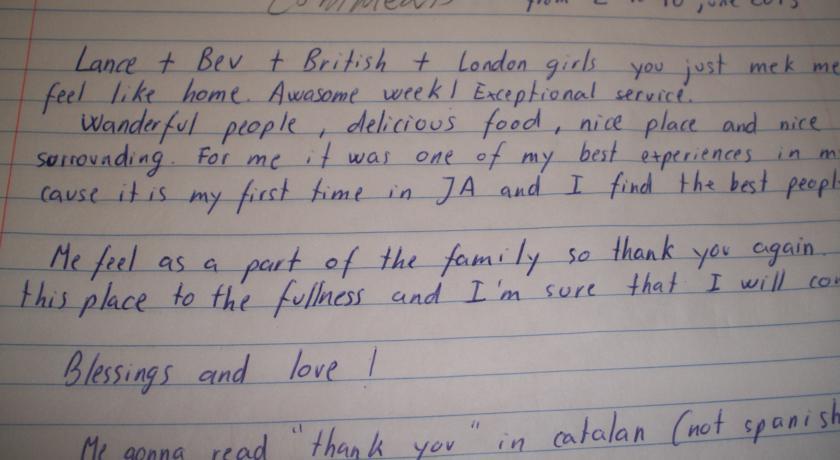 Comments from 2 to 10 june
Lance + Bev + British + London girls you just mek me
feel like home. Awasome week! Exceptional service.
Wanderful people, delicious food, nice place and nice
sorrounding. For me it was one of my best experiences in
cause it is my first time in JA and I find the best
Me feel as a part of the family so thank you again.
this place to the fullness and I'm sure that I will
Blessings and love!
Me gonna read "thank you" in catalan (not spanish